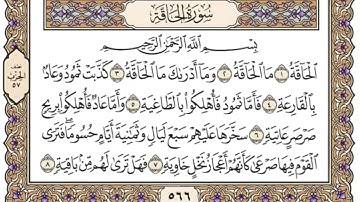 سُورَةُ الْحَاقَّةِ
بِسْمِ اللَّهِ الرَّحْمَٰنِ الرَّحِيمِ
الْحَاقَّةُ ١ مَا الْحَاقَّةُ ٢ وَمَا أَدْرَاكَ مَا الْحَاقَّةُ ٣ كَذَّبَتْ ثَمُودُ وَعَادٌ
بِالْقَارِعَةِ ٤ فَأَمَّا ثَمُودُ فَأُهْلِكُوا بِالطَّاغِيَةِ ٥ وَأَمَّا عَادٌ فَأُهْلِكُوا بِرِيحٍ
صَرْصَرٍ عَاتِيَةٍ ٦ سَخَّرَهَا عَلَيْهِمْ سَبْعَ لَيَالٍ وَثَمَٰنِيَةَ أَيَّامٍ حُسُومًا فَتَرَى
الْقَوْمَ فِيهَا صَرْعَىٰ كَأَنَّهُمْ أَعْجَازُ نَخْلٍ خَاوِيَةٍ ٧ فَهَلْ تَرَىٰ لَهُم مِّن بَاقِيَةٍ ٨
٥٦٦
الحزب
٥٧